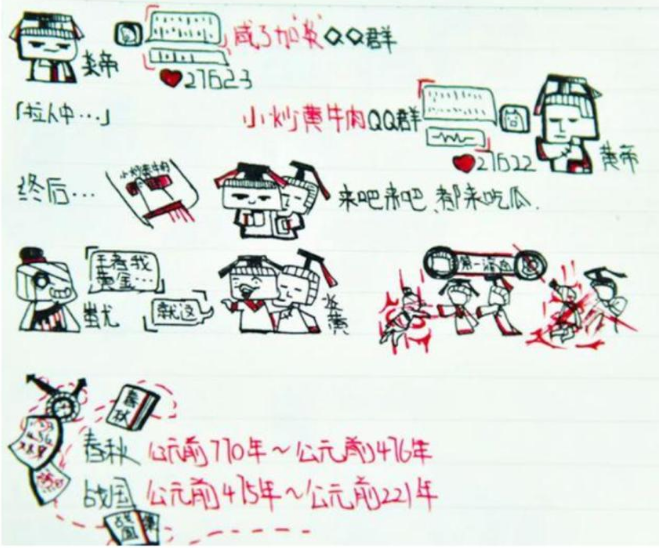 炎帝 咸了加炎QQ群
27623
「拉人中…」 小炒黄牛肉QQ群
27622 黄帝
终后… 小炒黄牛肉 来吧来吧、都来吃瓜.
王者我
黄金…
蚩尤 就这 炎黄
第一滴血
春秋
春秋 公元前770年～公元前476年
战国 公元前475年～公元前221年
战国